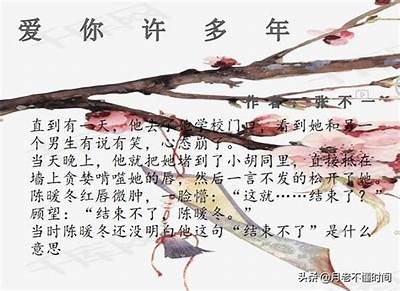 爱你许多年
作者：张不一
直到有一天，他去了她学校门口，看到她和另一
个男生有说有笑，心态崩了。
当天晚上，他就把她堵到了小胡同里，直接抵在
墙上贪婪啃噬她的唇，然后一言不发的松开了她。
陈暖冬红唇微肿，一脸懵：“这就……结束了？”
顾望：“结束不了，陈暖冬。”
当时陈暖冬还没明白他这句“结束不了”是什么
意思
头条@月老不懂时间